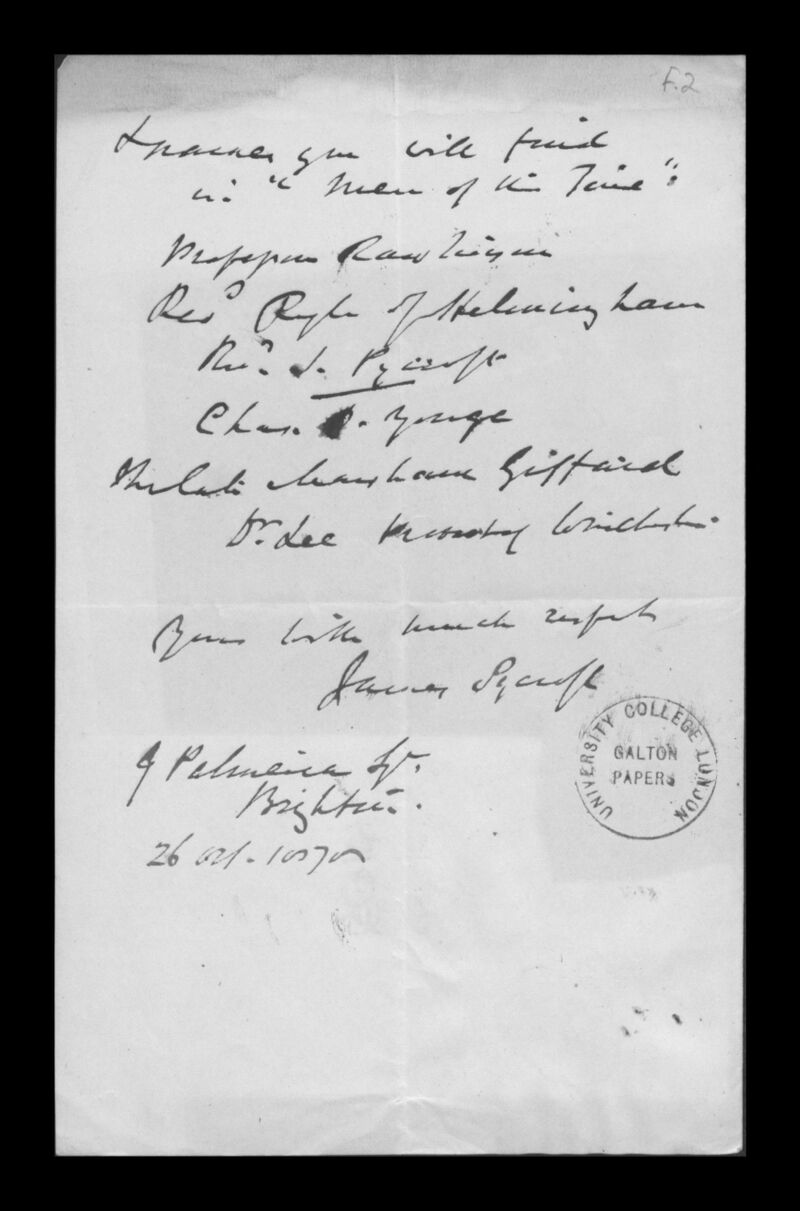 F.2
names you will find
in "Men of the Time":
Professor Rawlinson
Revd Ryle of Helmingham
Revd J. Pycroft
Chas. D. Yonge
The late Markham Giffard
Dr. Lee
Yours with much respect
James Pycroft
9 Palmeira Sqr.
Brighton.
26 Oct. 1870
UNIVERSITY COLLEGE LONDON
GALTON
PAPERS